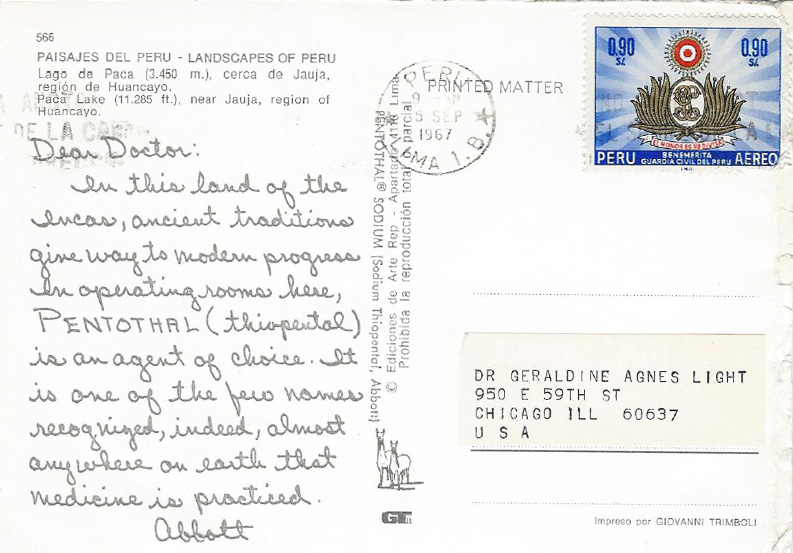 566
PAISAJES DEL PERU - LANDSCAPES OF PERU
Lago de Paca (3.450 m.), cerca de Jauja,
región de Huancayo.
Paca Lake (11.285 ft.), near Jauja, region of
Huancayo.
DE LA
Dear Doctor:
In this land of the
Incas, ancient traditions
give way to modern progress
In operating rooms here,
PENTOTHAL (thiopental)
is an agent of choice. It
is one of the few names
recognized, indeed, almost
anywhere on earth that
medicine is practiced.
Abbott
PENTOTHAL® SODIUM (Sodium Thiopental, Abbott)
© Ediciones de Arte Rep - Apartado 4116 Lima
Prohibida la reproducción total parcial
GT
PERU
5 SEP
1967
LIMA 1.B.
PRINTED MATTER
0.90
S/.
0.90
S/.
EL HONOR ES SU DIVISA
BENEMERITA
PERU GUARDIA CIVIL DEL PERU AEREO
DR GERALDINE AGNES LIGHT
950 E 59TH ST
CHICAGO ILL 60637
U S A
Impreso por GIOVANNI TRIMBOLI